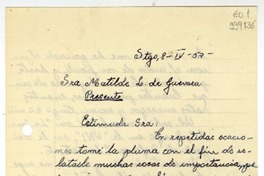 Stgo, 8-IV-57-
Sra Matilde L. de Guevara
Presente
Estimada Sra:
En repetidas ocacio-
nes tomé la pluma con el fin de re-
latarle muchas cosas de importancia, que